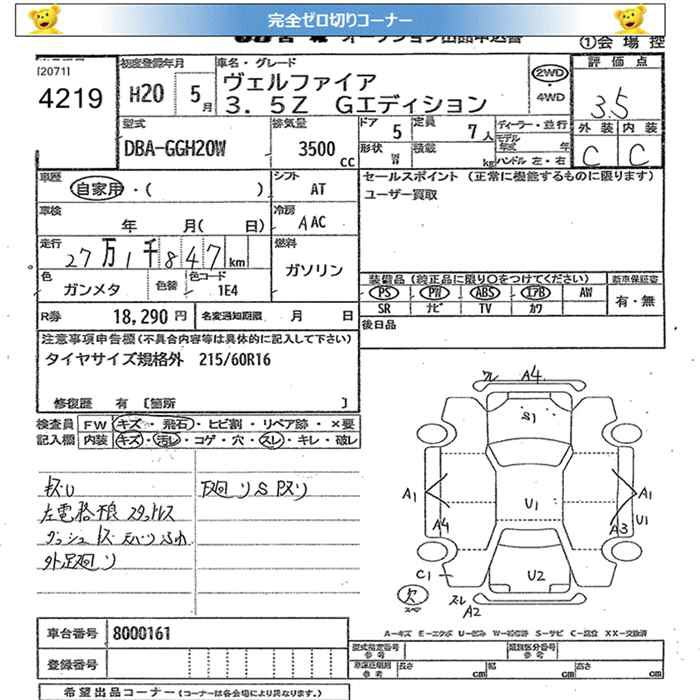 完全ゼロ切りコーナー
オークション出品申込書
①会場控
[2071]
4219
初度登録年月
H20 5月
車名・グレード
ヴェルファイア
3.5Z Gエディション
2WD
4WD
評価点
3.5
外装 内装
C C
型式
DBA-GGH20W
排気量
3500 cc
ドア 5
定員 7人
形状
積載 kg
ディーラー・並行
モデル年式 年
ハンドル 左・右
車歴
自家用・( )
シフト
AT
車検
年 月( 日)
冷房
AAC
走行
27万1千847km
燃料
ガソリン
色
ガンメタ
色替
色コード
1E4
R券 18,290円
名変通知期限 月 日
セールスポイント (正常に機能するものに限ります)
ユーザー買取
装備品(純正品に限り○をつけてください)
新車保証書
PS PW ABS エアB AW
SR ナビ TV カワ
有・無
後日品
注意事項申告欄(不具合内容等は具体的に記入して下さい)
タイヤサイズ規格外 215/60R16
修復歴 有 [箇所 ]
検査員記入欄
FW キズ・飛石・ヒビ割・リペア跡・×要
内装 キズ・汚レ・コゲ・穴・スレ・キレ・破レ
外足廻り
A4
S1
A1
A4
U1
A1
U1
A3
C1
U2
欠
スペア
A2
A=キズ E=エクボ U=凹み W=補修跡 S=サビ C=腐食 XX=交換済
車台番号 8000161
登録番号
型式指定番号
参考
類別区分番号
参考
長さ cm 幅 cm 高さ cm
希望出品コーナー(コーナーは各会場により異なります。)